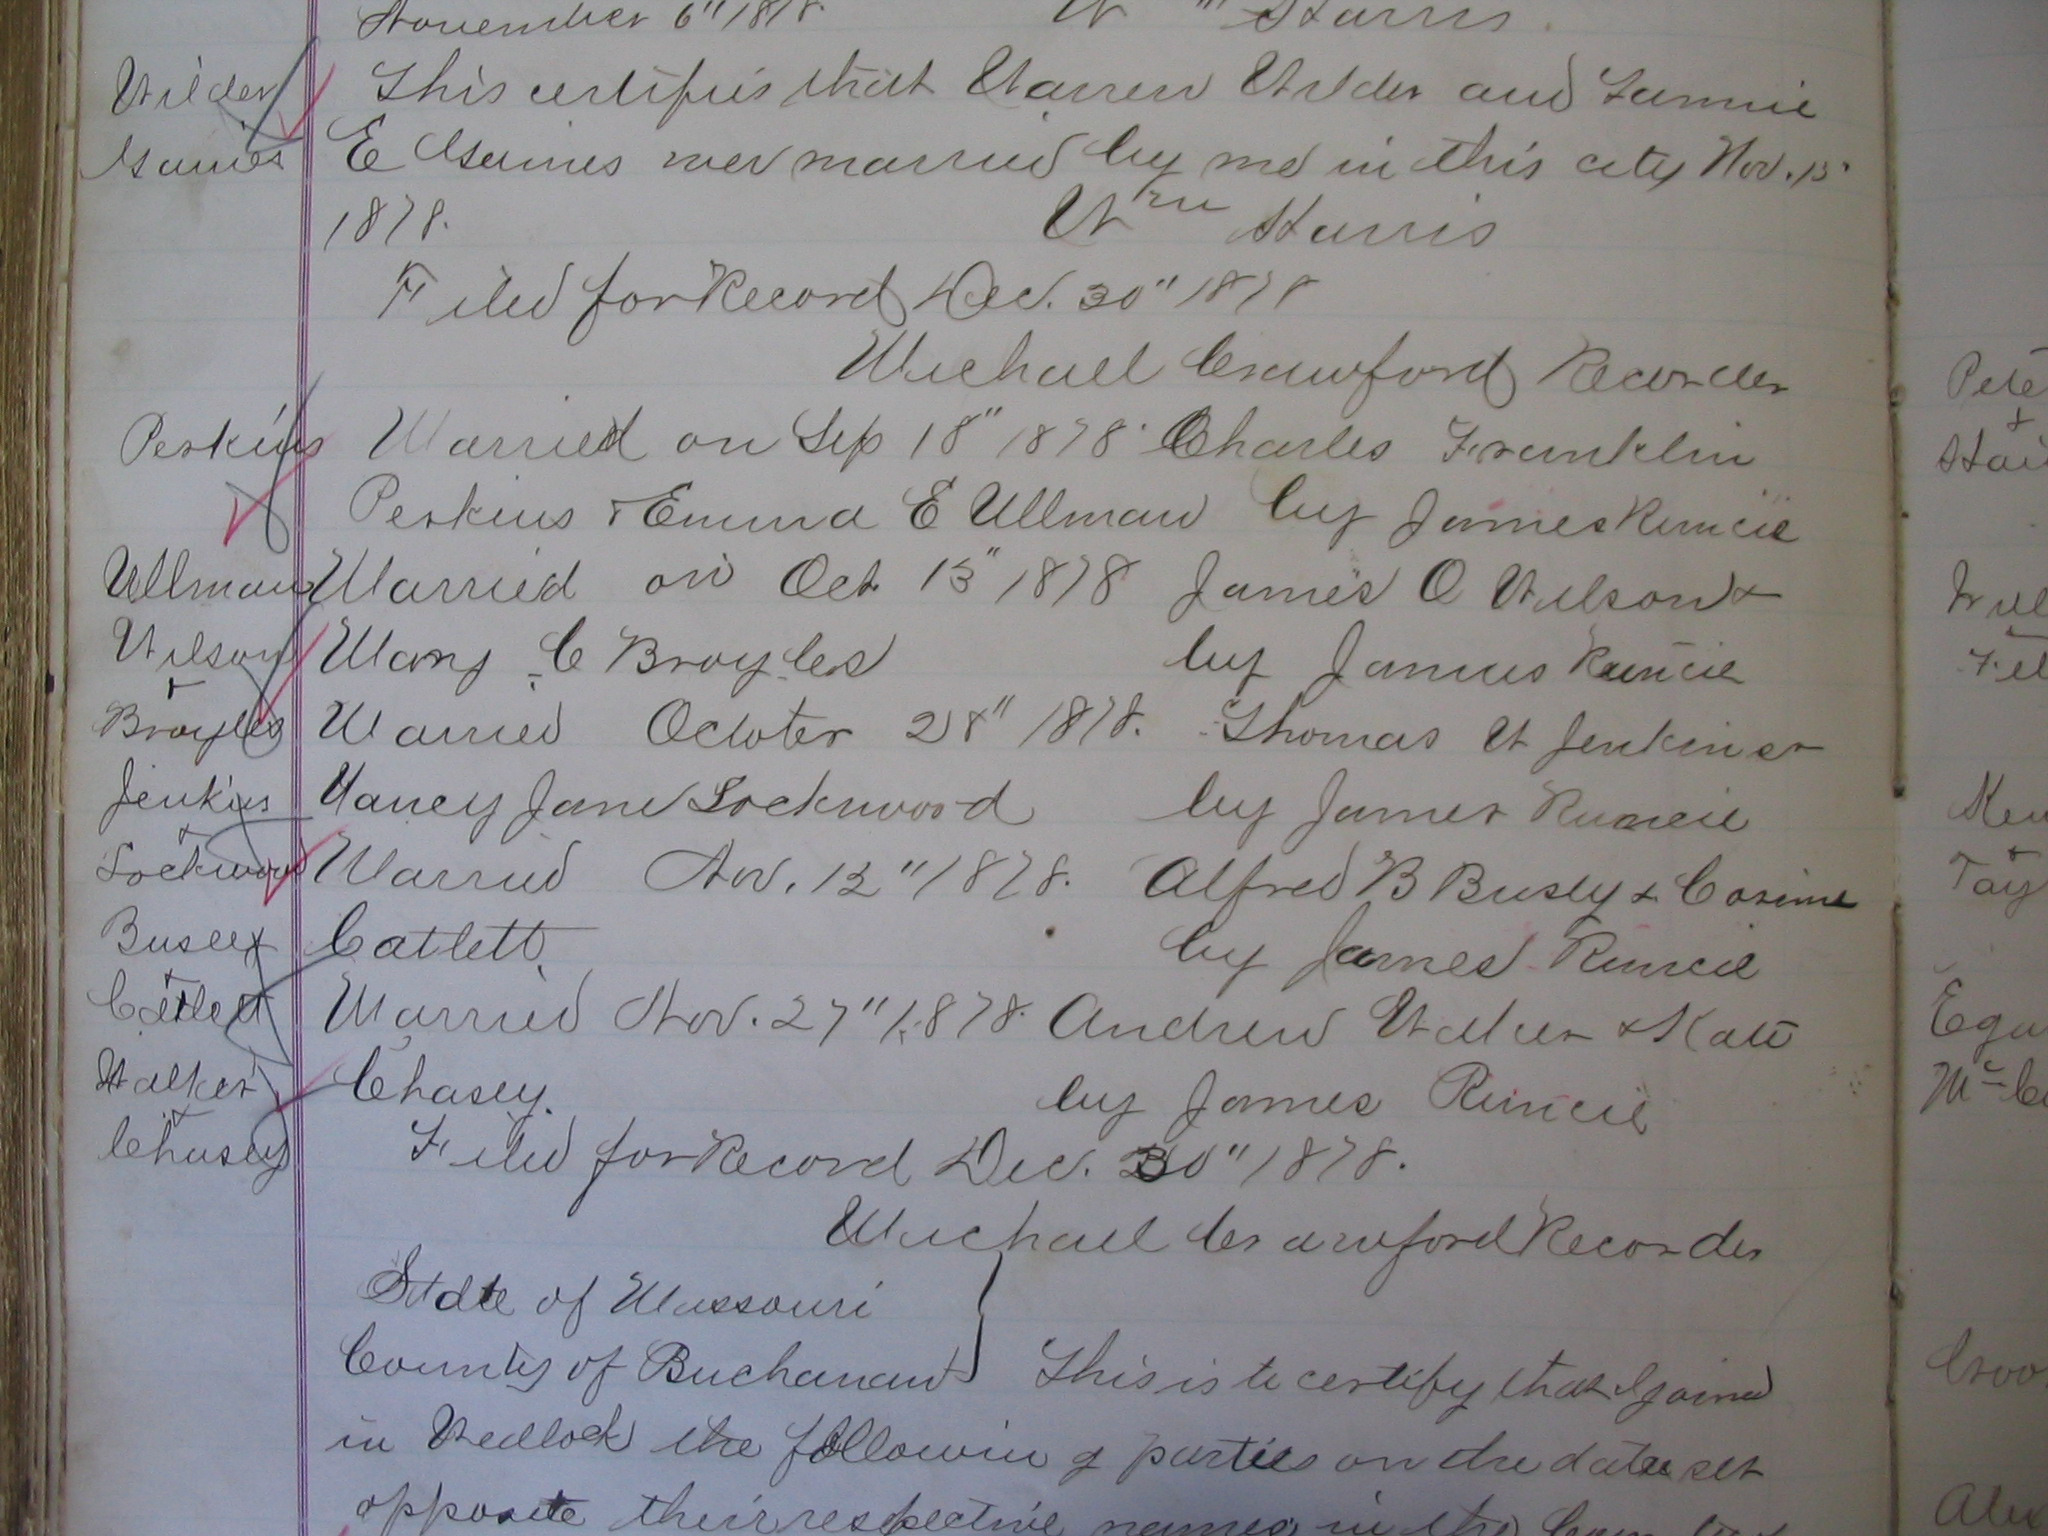 November 6" 1878. Wm Harris.
Wilder This certifies that Warren Wilder and Fannie
Gaines E Gaines wer married by me in this city Nov. 15"
1878. Wm Harris
Filed for Record Dec. 30" 1878
Michael Crawford Recorder
Perkins Married on Sep 18" 1878 Charles Franklin
Perkins & Emma E Ullman by James Runcie
Ullman Married on Oct 15" 1878 James O Wilson &
Wilson Mary C Broyles by James Runcie
&
Broyles Married October 28" 1878. Thomas W Jenkins &
Jenkins Nancy Jane Lockwood by James Runcie
&
Lockwood Married Nov. 12" 1878. Alfred B Busey &
Busey Catlett by James Runcie
&
Catlett Married Nov. 27" 1878. Andrew Walker & Kate
Walker Chasey. by James Runcie
&
Chasey Filed for Record Dec. 30" 1878.
Michael Crawford Recorder
State of Missouri
County of Buchanan } This is to certify that I joined
in Wedlock the following parties on the date set
opposite their respective names in the
Pete
&
Wil
Fel
Ken
&
Tay
Mc